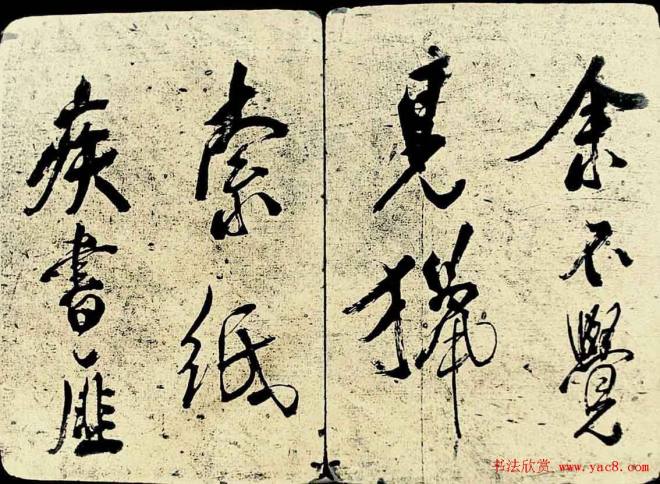 余不覺
見獵
索紙
疾書匪
书法欣赏 www.yac8.com